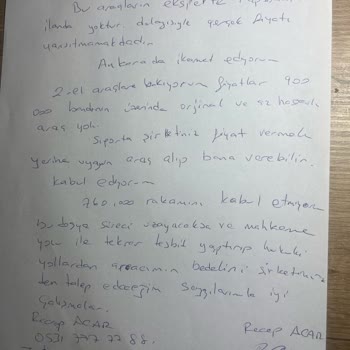 Bu araçların ekspertiz raporları
ilanda yoktur. dolayısıyle gerçek fiyatı
yansıtmamaktadır.
Ankara da ikamet ediyorum
2-el araçlara bakıyorum fiyatlar 900
000 bandının üzerinde orjinal ve az hasarlı
araç yok.
Sigorta şirketinik fiyat vermek
yerine uygun araç alıp bana verebilir.
kabul ediyorum
760.000 rakamını kabul etmiyorum
bu dosya süreci uzayacaksa ve mahkeme
yolu ile tekrar tesbit yaptırıp hukuki
yollardan aracımın bedelini şirketiniz
den talep edeceğim saygılarımla iyi
Çalışmalar.
Recep ACAR
Recep ACAR